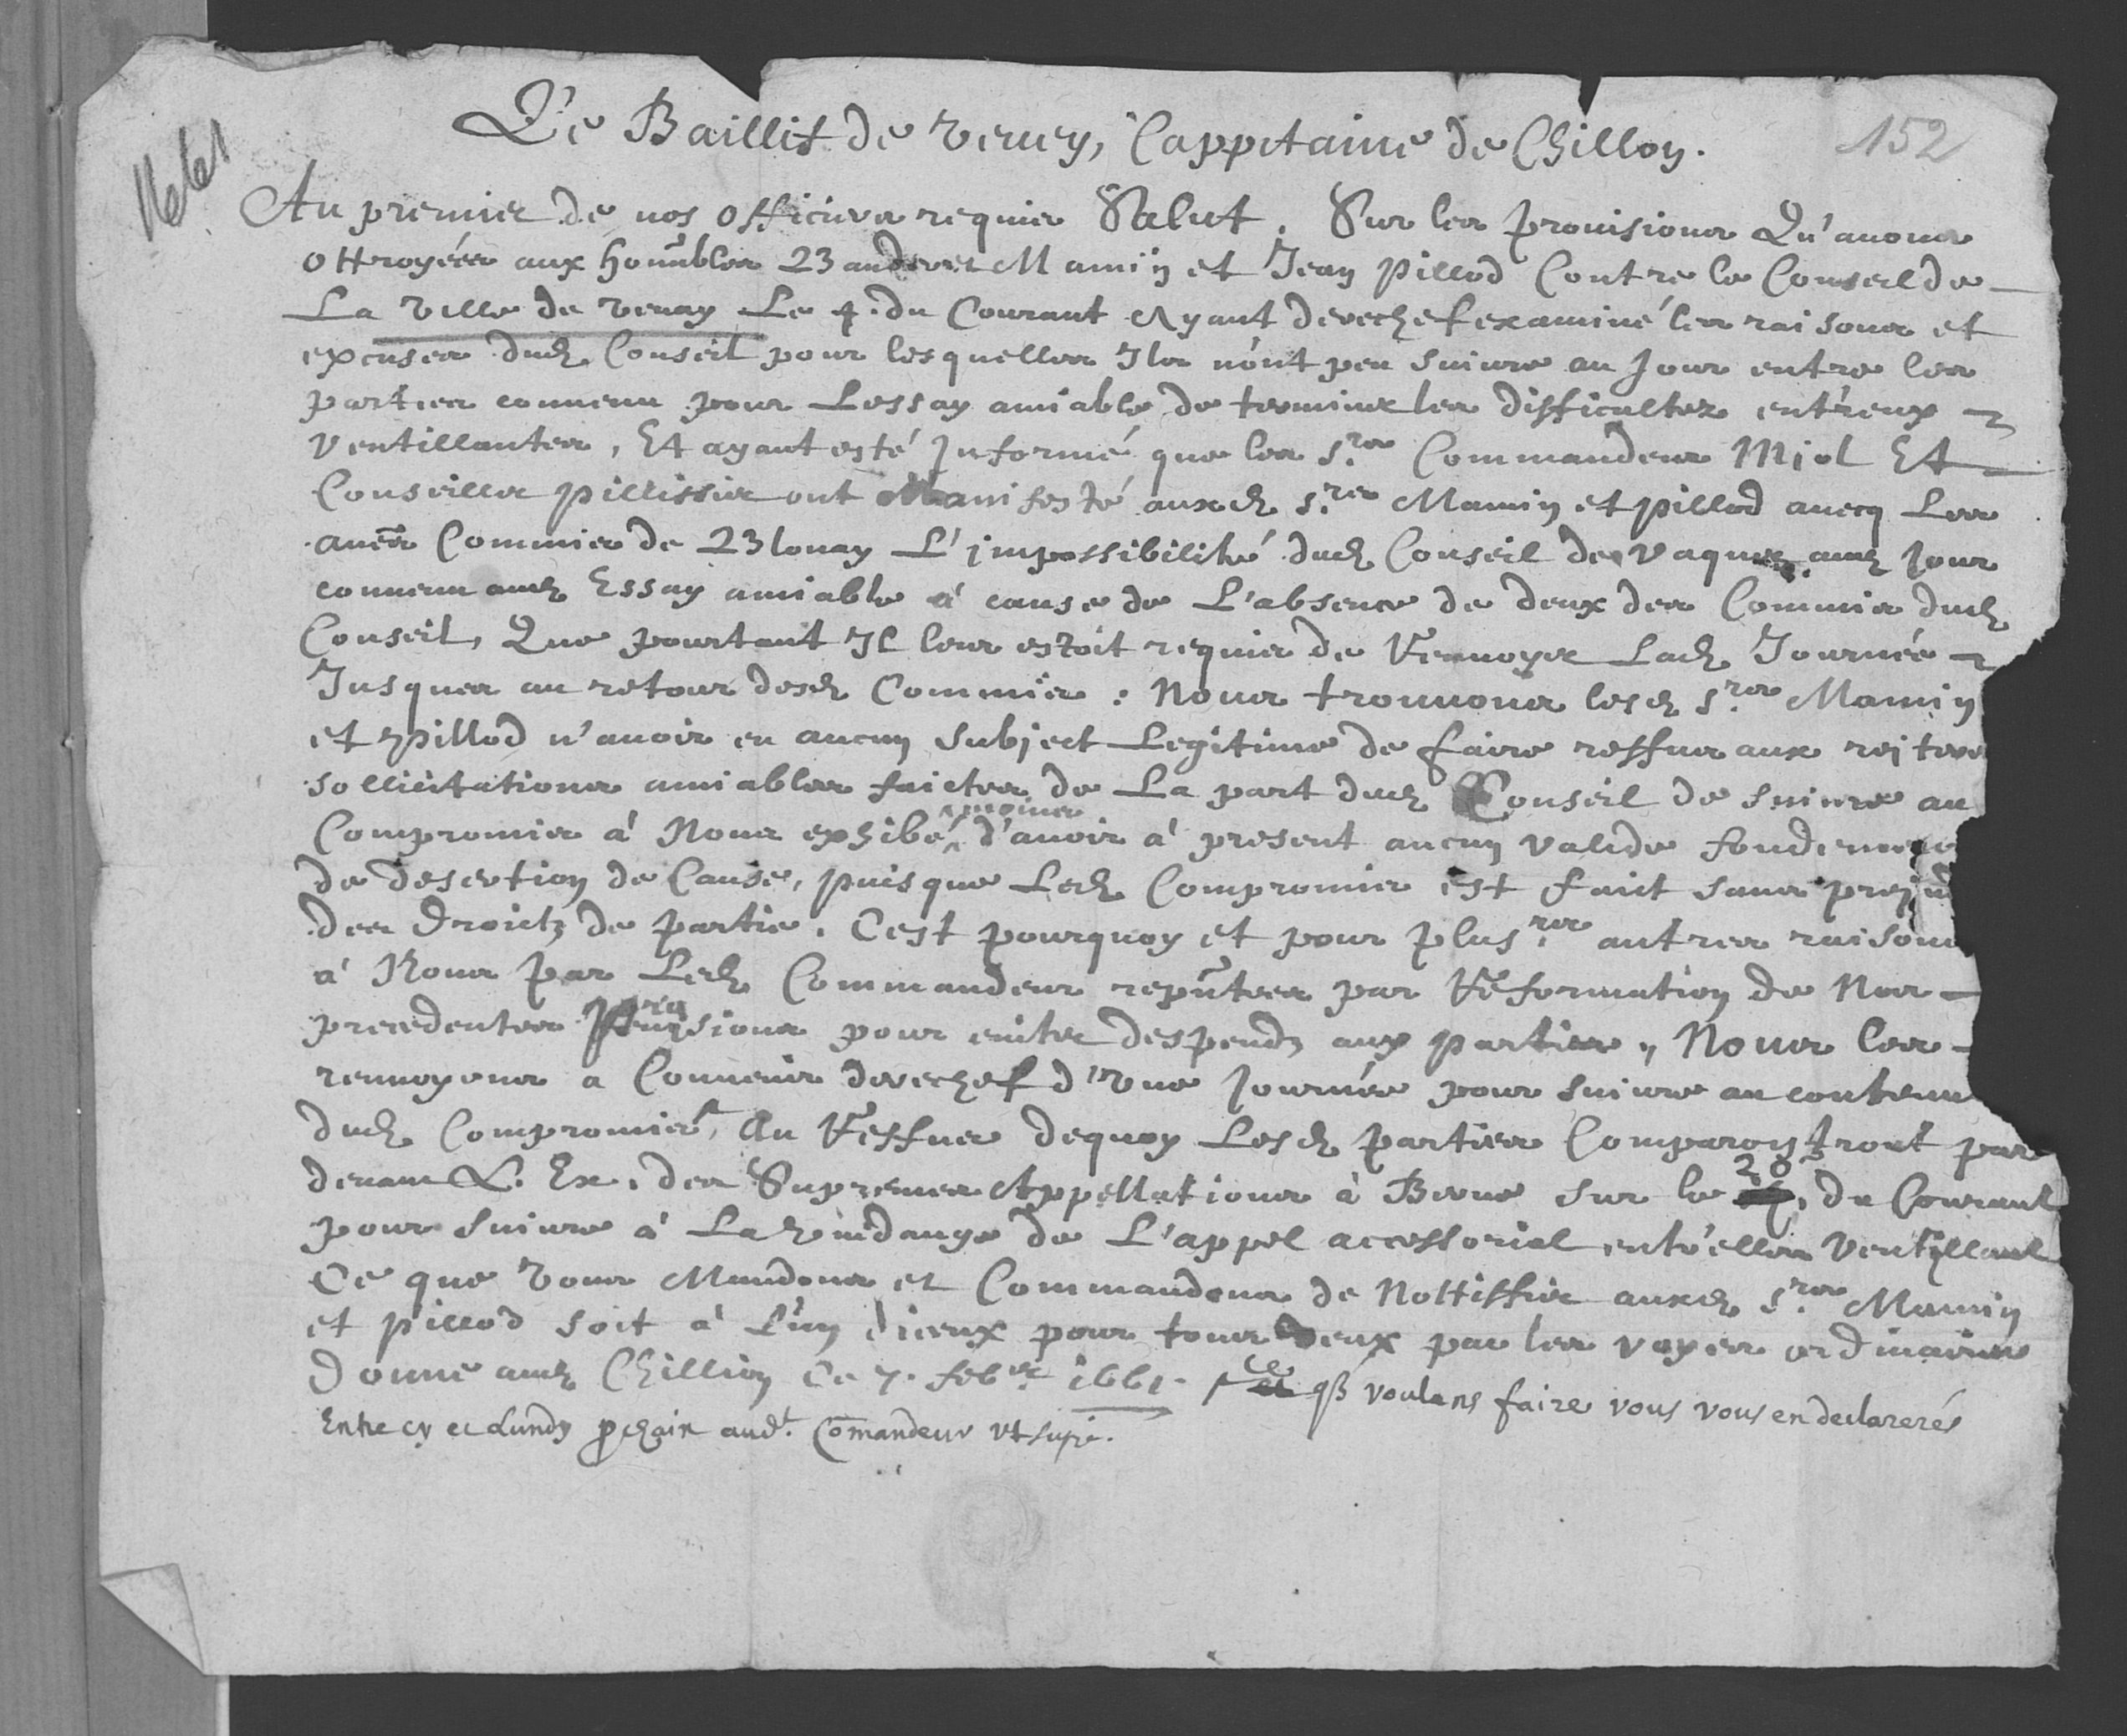 Le Baillif de vevey, Cappitaine de Chillon.
152
1661
Au premier de nos Officiers requis Salut. Sur les provisions Qu'avons
ottroyées aux honnbles Banderet Mamin et Jean Pillod Contre le Conseil de
La Ville de Vevay Le 4. du Courant Ayant derechef examiné les raisons et
excuses dud. Conseil pour lesquelles Ils n'ont peu suivre au Jour entre les
parties convenu pour Lessay amiable de terminer les difficultez entreux
Ventillantes, Et ayant esté Informé que les s.rs Commandeur Miol Et
Conseiller Pillissier ont Manifesté auxd. s.rs Mamin et Pillod avecq Les
Commis de Blonay L'impossibilité dud. Conseil de Vaquer aud. Jour
convenu aud. Essay amiable à cause de L'absence de deux des Commis dud.
Conseil, Que pourtant Il leur estoit requis de Renvoyer Lad. Journée
Jusques au retour desd. Commis: Nous trouvons lesd. s.rs Mamin
et Pillod n'avoir eu aucun subject Legitime de faire reffus aux reitere
sollicitations amiables faictes de La part dud. Conseil de suivre au
Compromis à Nous exhibé moins d'avoir à present aucun valide fondeme
de desertion de Cause, puis que Led. Compromis est faict sans prejud
des droictz de partie. C'est pourquoy et pour plus.rs autres raisons
à Nous par Led. Commandeur reputées par Reformation de Nos
precedentes Provisions pour eviter despendz aux parties, Nous les
renvoyons a Convenir derechef d'Une Journée pour suivre au contenu
dud. Compromis, Au Reffus dequoy Lesd. parties Comparoistront par
devant L. Ex. des Supremes Appellations à Berne sur le 20. du Courant
pour suivre à La Vuidange de L'appel accessorial entr'elles Ventillant
Ce que Vous Mandons et Commandons de Nottiffier auxd. s.rs Mamin
et Pillod soit à L'un d'ieux pour tous deux par les voyes ordinaires
Donné aud. Chillion Ce 7. feb.er 1661. Ce q voulans faire vous vous en declarerés
Entre cy et Lundy prochain aud.t Comandeur Vt supr.